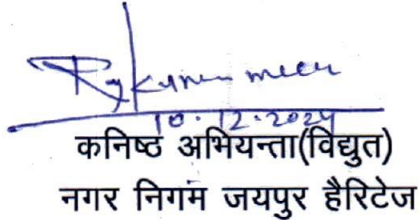 Rajkumar meena
10.12.2024
कनिष्ठ अभियन्ता(विद्युत)
नगर निगम जयपुर हैरिटेज